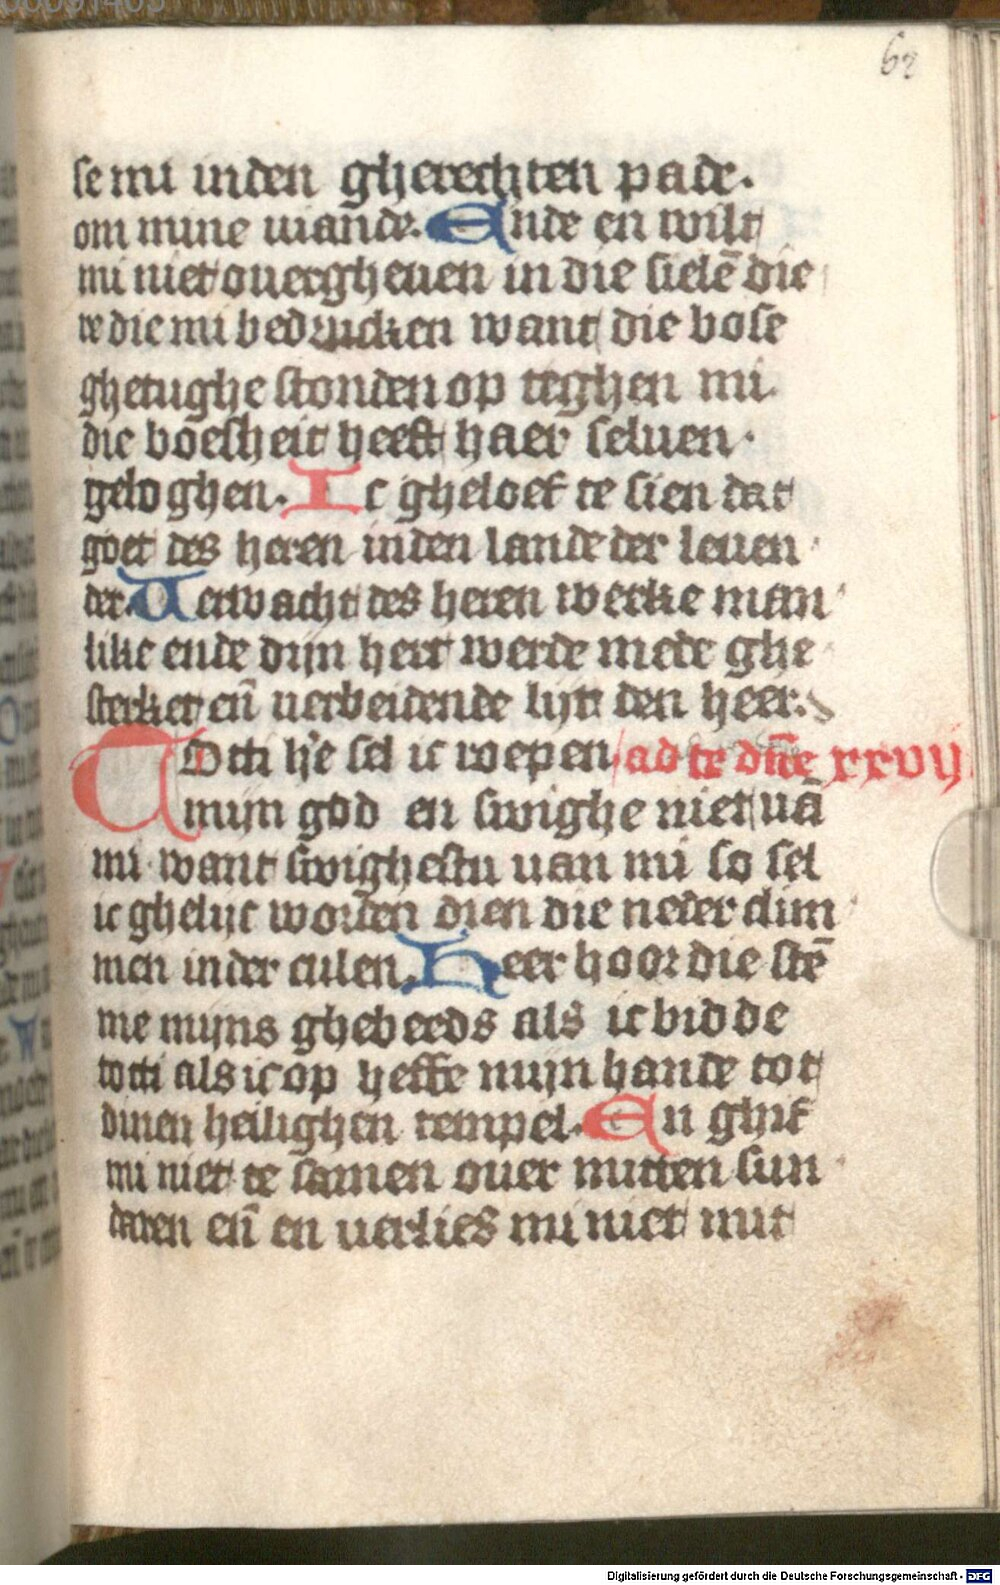 62
se mi inden gherechten pade.
om mine uiande. Ende en wilt
mi niet ouergheuen in die sielē die
te die mi bedrucken want die bose
ghetughe stonden op teghen mi
die boesheit heeft haer seluen
geloghen. Ic gheloef te sien dat
goet des heren inden lande der leuen
der. Uerwacht des heren werke man
like ende dijn hert werde mede ghe
sterket eñ uerbeidende sijt den heer.
TOti h'e sel ic roepen ad te dñe xxvij
mijn god en swighe niet uā
mi want swighestu uan mi so sel
ic ghelijc worden dien die neder clim
men inder culen. Heer hoor die stē
me mijns ghebeeds als ic bidde
toti als ic op heffe mijn hande tot
dinen heilighen tempel. En ghif
mi niet te samen ouer mitten sun
daren eñ en uerlies mi niet mit
Digitalisierung gefördert durch die Deutsche Forschungsgemeinschaft - DFG